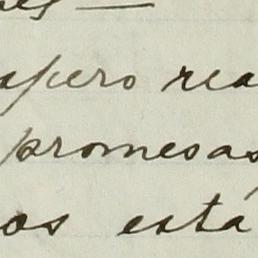 apero rea
promesas
os está